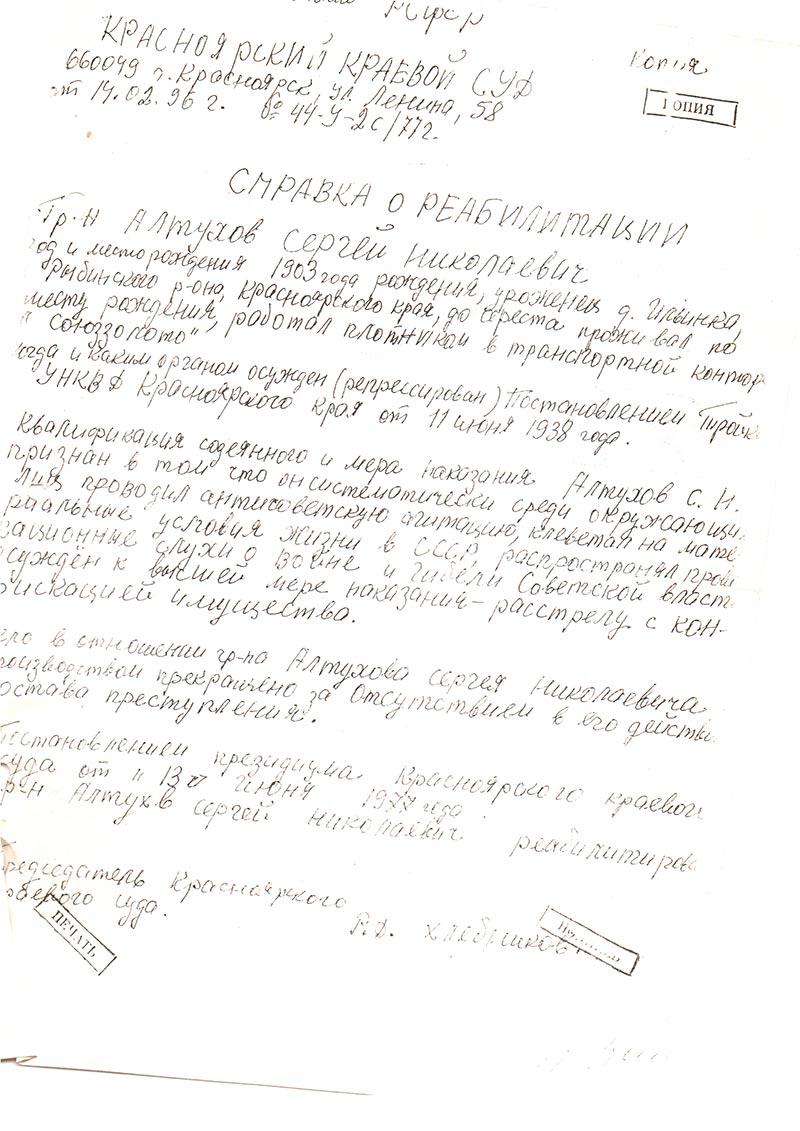 РСФСР
КРАСНОЯРСКИЙ КРАЕВОЙ СУД
Копия
660049 г. Красноярск, ул. Ленина, 58
КОПИЯ
от 14.02.96 г. № 44-У-2с/77г.
СПРАВКА О РЕАБИЛИТАЦИИ
Гр-н АЛТУХОВ СЕРГЕЙ НИКОЛАЕВИЧ
год и место рождения 1903 года рождения, уроженец д. Ильинка,
Рыбинского р-она, Красноярского края, до ареста проживал по
месту рождения, работал плотником в транспортной контор
"Союззолото"
огда и каким органом осужден (репрессирован) Постановлением Тройк
УНКВД Красноярского края от 11 июня 1938 года.
Квалификация содеянного и мера наказания Алтухов С. Н.
признан в том что он систематически среди окружающи
лиц проводил антисоветскую агитацию, клеветал на мате
риальные условия жизни в СССР распространял прово
кационные слухи о войне и гибели Советской власт
осуждён к высшей мере наказания - расстрелу с кон-
фискацией имущества.
ело в отношении гр-на Алтухова Сергея Николаевича
роизводством прекращено за отсутствием в его действи
остава преступления.
Постановлением президиума Красноярского краевого
суда от "13" июня 1977 года
гр-н Алтухов Сергей Николаевич реабилитирова
Председатель Красноярского
раевого суда.
ПЕЧАТЬ
Хлебников